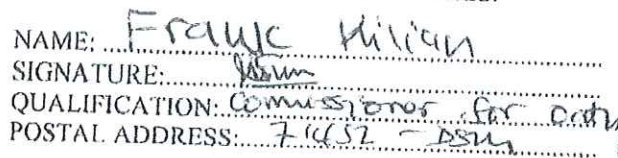 NAME: Frank Kilian
SIGNATURE:
QUALIFICATION: Comissioner for Oath
POSTAL ADDRESS: - DSM